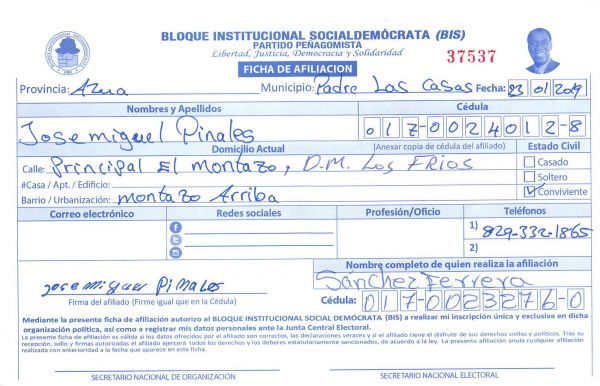 BLOQUE INSTITUCIONAL SOCIALDEMÓCRATA (BIS)
PARTIDO PEÑAGOMISTA
Libertad, Justicia, Democracia y Solidaridad
37537
FICHA DE AFILIACION
Provincia: Azua Municipio: Padre Las Casas Fecha: 23/01/2019
Nombres y Apellidos Cédula
Jose miguel Pinales 017-0024012-8
Domicilio Actual (Anexar copia de cédula del afiliado) Estado Civil
Calle: Principal El montazo, D.M. Los Frios Casado
#Casa / Apt. / Edificio: Soltero
Barrio / Urbanización: montazo Arriba Conviviente
Correo electrónico Redes sociales Profesión/Oficio Teléfonos
1) 829-332-1865
2)
Nombre completo de quien realiza la afiliación
jose miguel Pinales Sánchez Ferrera
Firma del afiliado (Firme igual que en la Cédula) Cédula: 017-0023276-0
Mediante la presente ficha de afiliación autorizo al BLOQUE INSTITUCIONAL SOCIAL DEMÓCRATA (BIS) a realizar mi inscripción única y exclusiva en dicha
organización política, así como a registrar mis datos personales ante la Junta Central Electoral.
La presente ficha de afiliación es válida si los datos ofrecidos por el afiliado son correctos, las declaraciones veraces y si el afiliado tiene el disfrute de sus derechos civiles y políticos. Tras su
recepción, sello y firmas autorizadas el afiliado ejercerá todos los derechos y los deberes estatutariamente sancionados, de acuerdo a la ley. La presente afiliación anula cualquier afiliación
realizada con anterioridad a la fecha que aparece en esta ficha.
SECRETARIO NACIONAL DE ORGANIZACIÓN SECRETARIO NACIONAL ELECTORAL